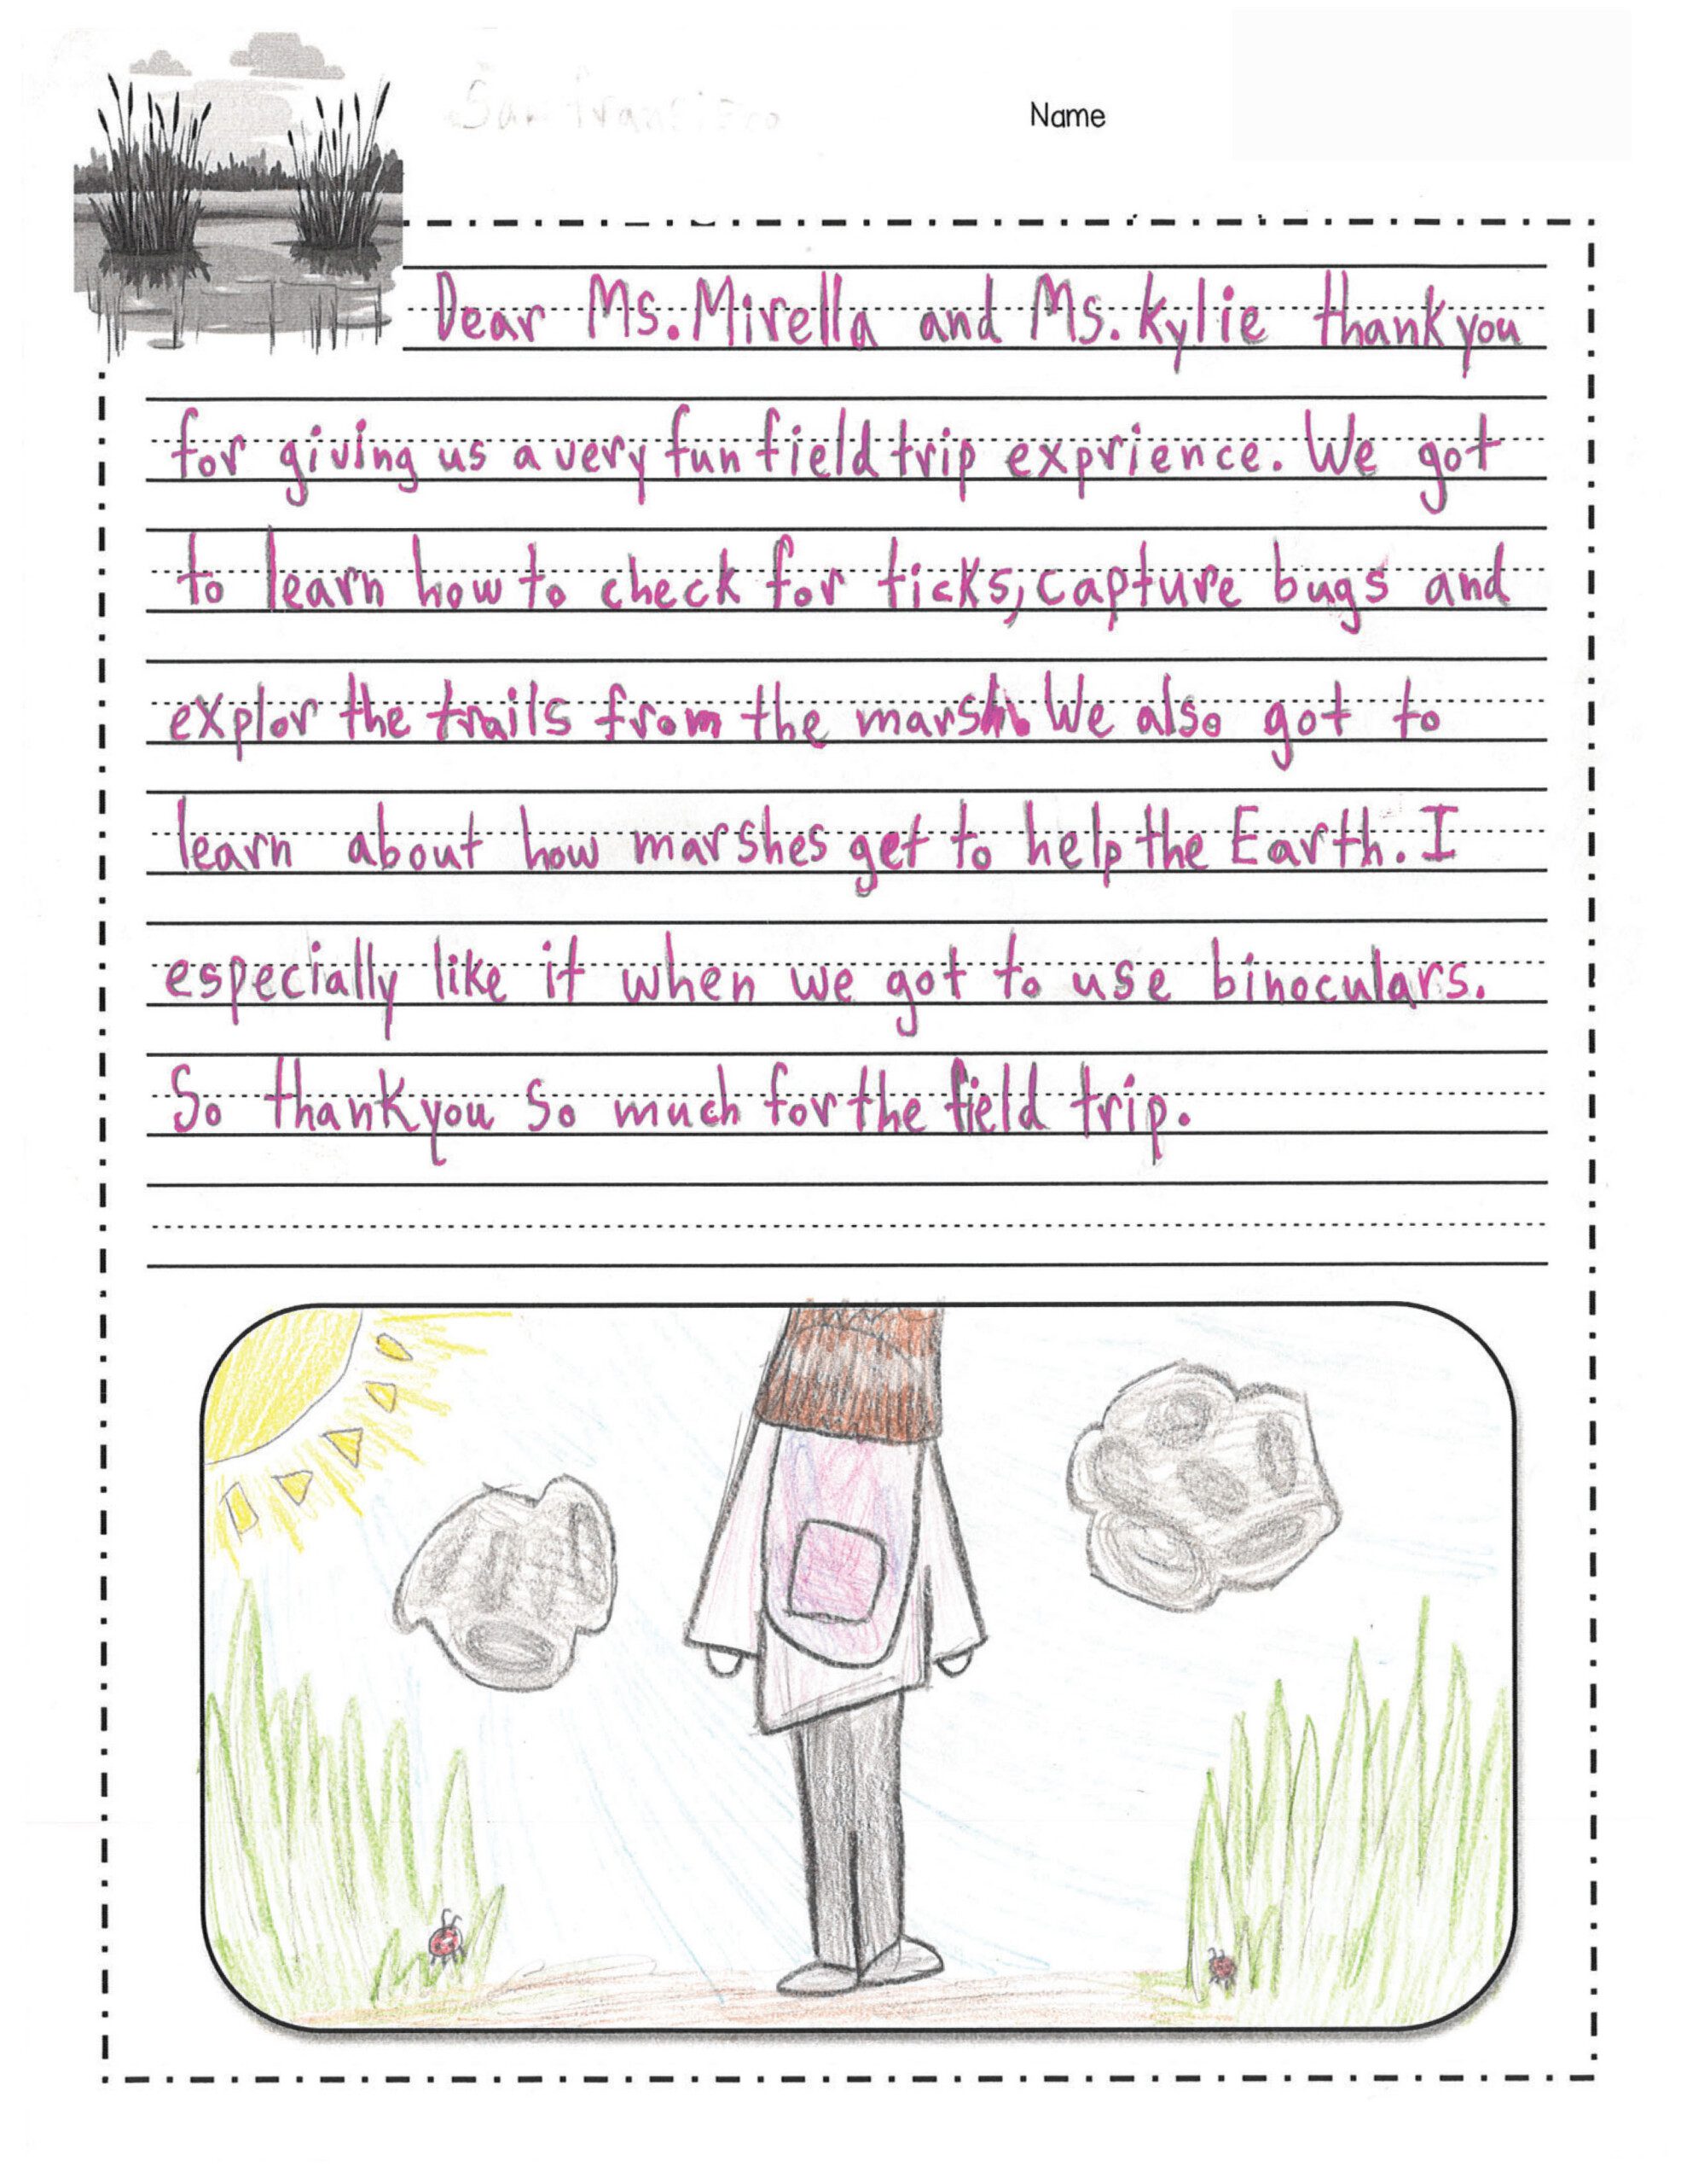 San Fransisco
Name
Dear Ms. Mirella and Ms. Kylie thank you
for giving us a very fun field trip exprience. We got
to learn how to check for ticks, capture bugs and
explor the trails from the marsh. We also got to
learn about how marshes get to help the Earth. I
especially like it when we got to use binoculars.
So thank you so much for the field trip.